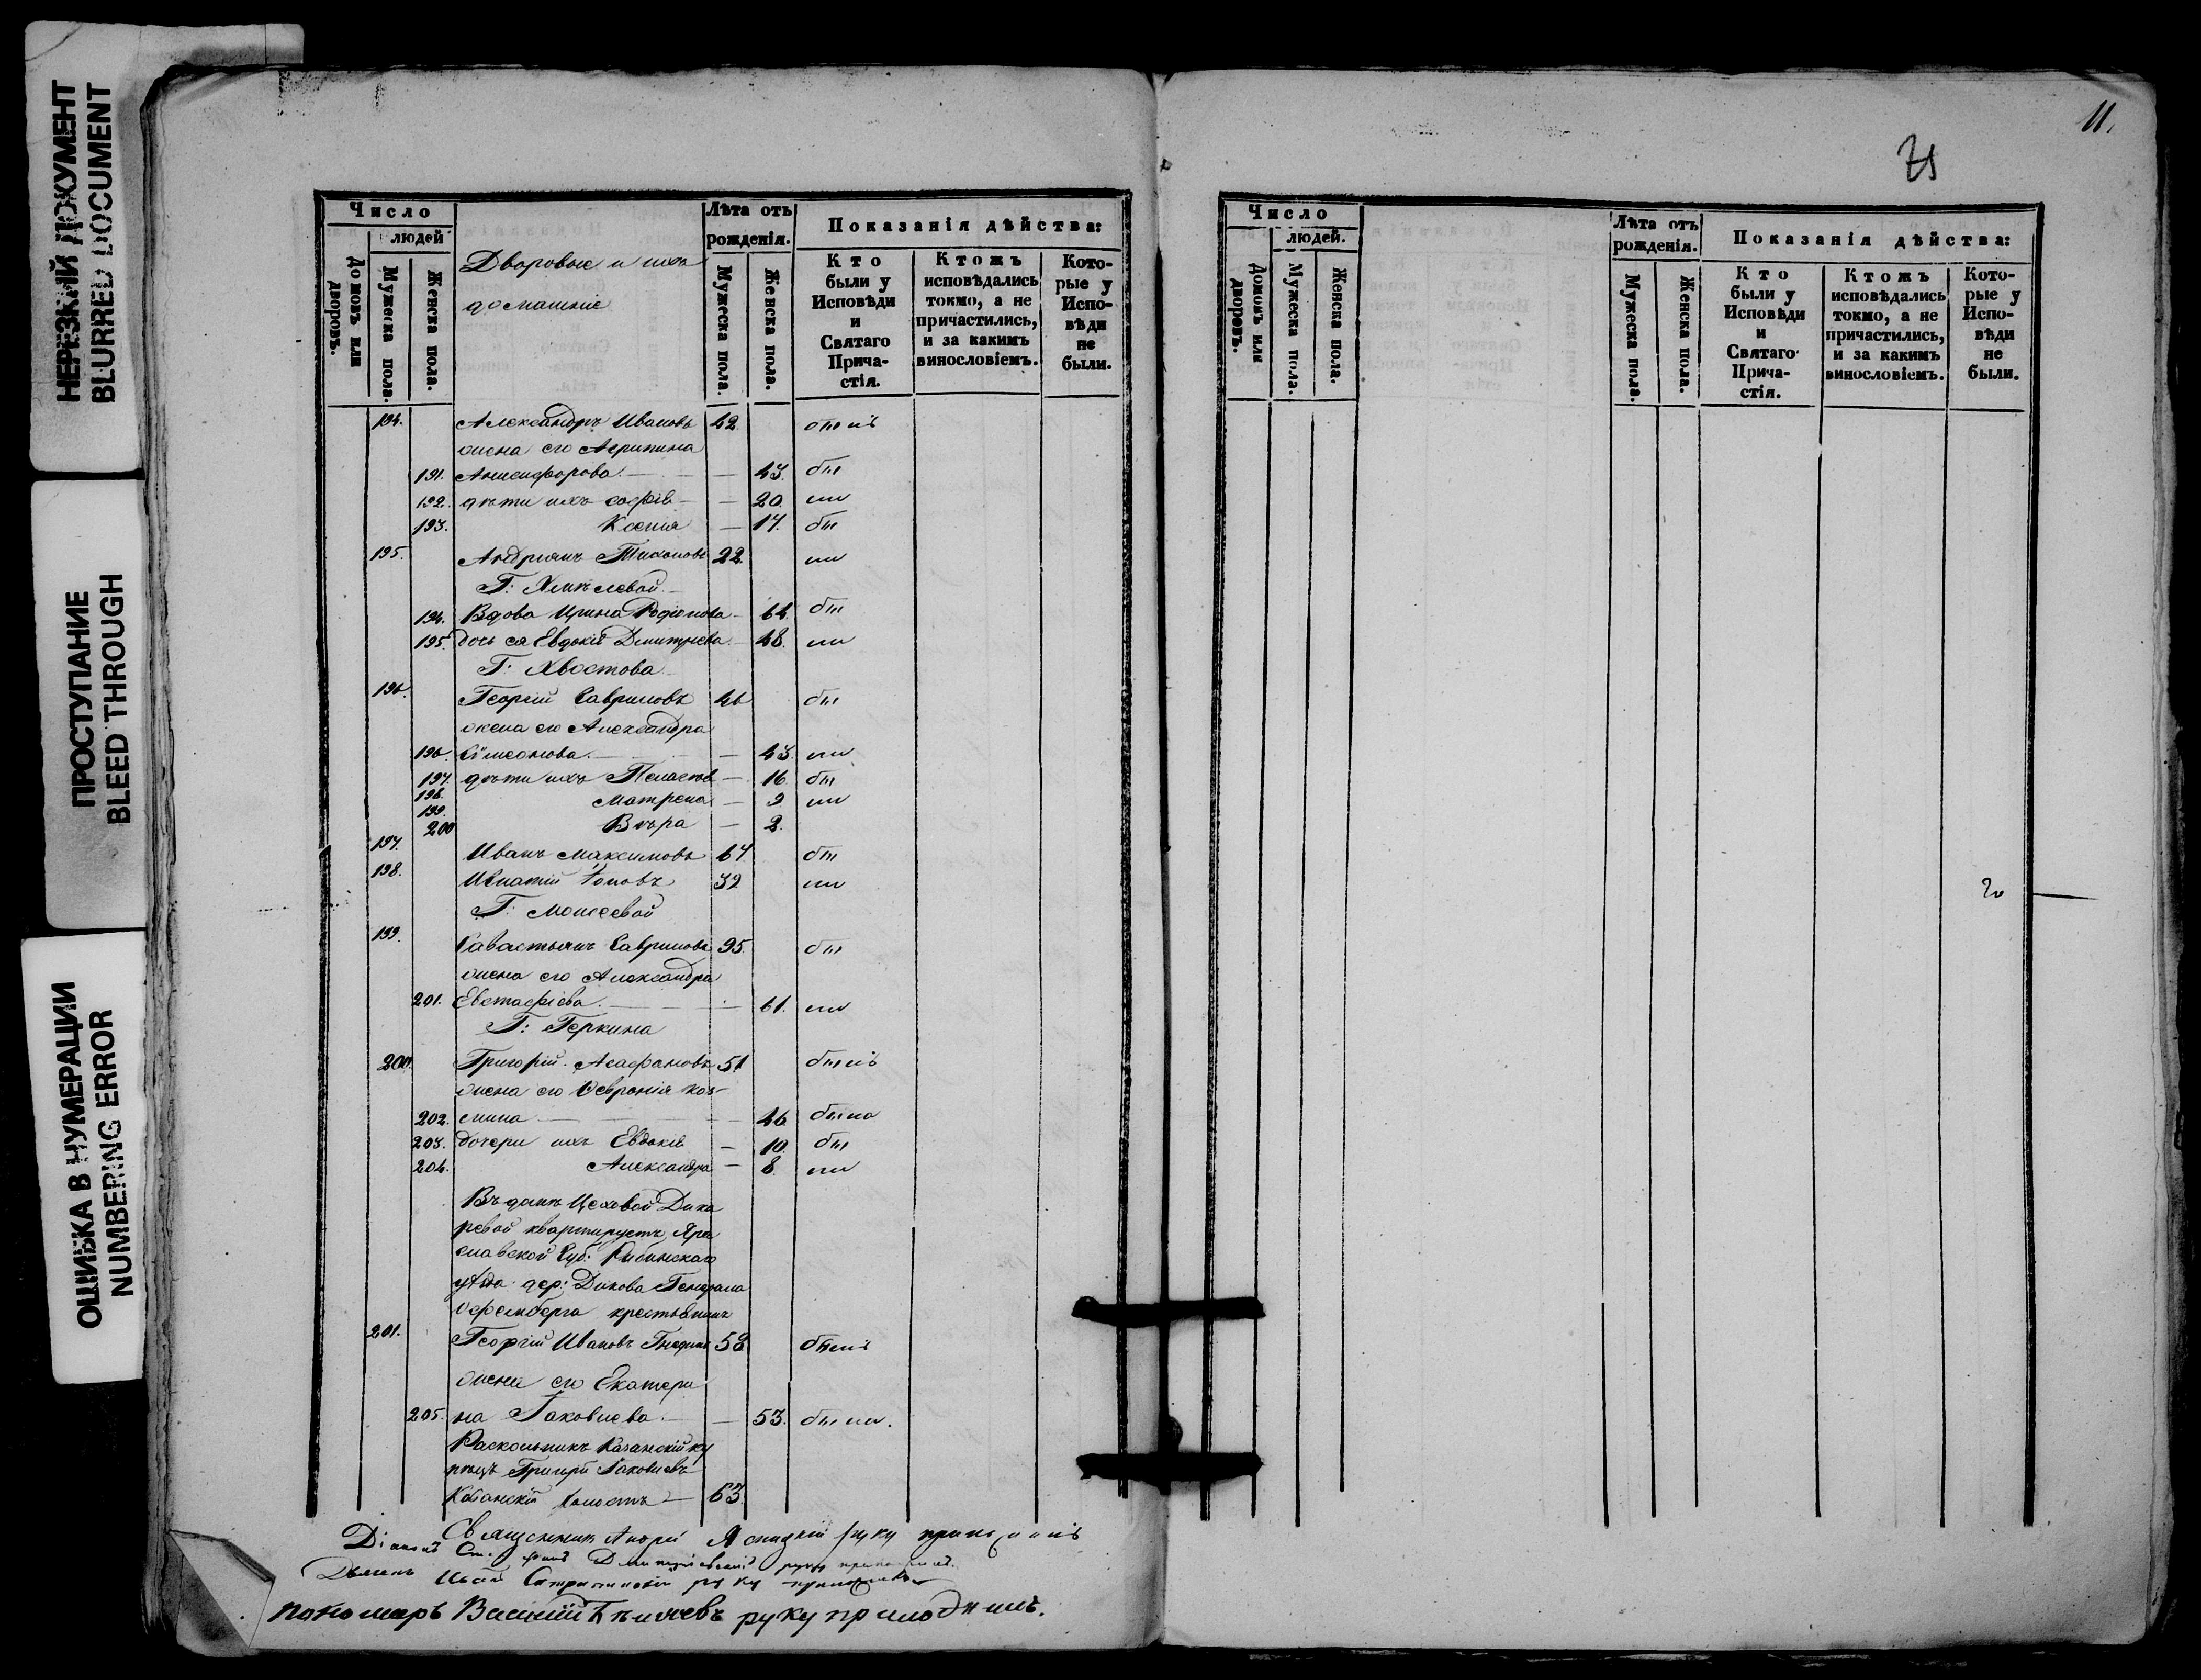 НЕРЕЗКИЙ ДОКУМЕНТ
BLURRED DOCUMENT
ПРОСТУПАНИЕ
BLEED THROUGH
ОШИБКА В НУМЕРАЦИИ
NUMBERING ERROR
Число
людей
Домовъ или дворовъ.
Мужеска пола.
Женска пола.
Дворовые и ихъ
домашніе
Лѣта отъ рожденія.
Мужеска пола.
Женска пола.
Показанія дѣйства:
Кто были у Исповѣди и Святаго Причастія.
Ктожъ исповѣдались токмо, а не причастились, и за какимъ винословіемъ.
Которые у Исповѣди не были.
194. Александръ Ивановъ 42
жена его Агрипина
191. Анисифорова — 43. бы
192. дѣти ихъ Софія — 20. ли
193. Ксенія — 17. бы
195. Андріянъ Тихоновъ 22. ли
Г:
194. Вдова Ирина Родіонова — 64. бы
195. дочь ея Евдокія Дмитріева — 48. ли
Г: Хвостова
196. Георгій Гавриловъ 46 бы
жена его Александра
196. Симеонова — 43. ли
197. дѣти ихъ Пелагея — 16. бы
198.
199. Матрена — 9. ли
200 Вѣра — 2.
197. Иванъ Максимовъ 67 бы
198. Игнатій 32 ли
Г: Моисеевой
199. Савастьянъ Гавриловъ 35. бы
жена его Александра
201. Евстафіева — 61. ли
Г: Геркина
200. Григорій Агафоновъ 51 былъ
жена его Февронія Коз-
202. мина — 46 была
203. дочери ихъ Евдокія — 10. бы
204. Александра — 8. ли
Въ домѣ Цеховой Дика
ревой квартируетъ Яро
славской Губ: Рыбинскаго
уѣзда дер: Дикова Генерала
крестьянинъ
201. Георгій Ивановъ 58 былъ
жена его Екатери
205. на Іаковлева — 53. была.
Раскольникъ Казанскій ку
пецъ Григорій Іаковлевъ
холостъ — 63.
Священникъ Андрей руку приложилъ
Діаконъ руку приложилъ
Дьячекъ руку приложилъ
Пономарь Василій Бѣляевъ руку приложилъ.
11.
Число
людей.
Домовъ или дворовъ.
Мужеска пола.
Женска пола.
Лѣта отъ рожденія.
Мужеска пола.
Женска пола.
Показанія дѣйства:
Кто были у Исповѣди и Святаго Причастія.
Ктожъ исповѣдались токмо, а не причастились, и за какимъ винословіемъ.
Которые у Исповѣди не были.